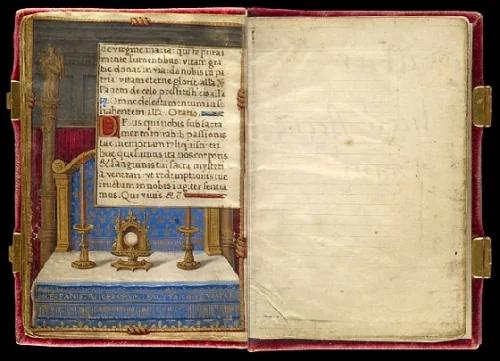 de virgine maria: qui te puras
mente sumentibus: vitam grat
tie donas in via: da nobis in pa
tria vitam eterne glorie. alla. V
Panem de celo prestitisti eis alla
Omne delectamentum in se
habentem. alla. Oratio.
DEus qui nobis sub sacra
mento mirabili passionis
tue memoriam reliquisti: tri
bue quesumus ita nos corporis
& sanguinis tui sacra mysteri
a venerari: ut redemptionis tue
fructum in nobis iugiter sentia
mus. Qui vivis &c